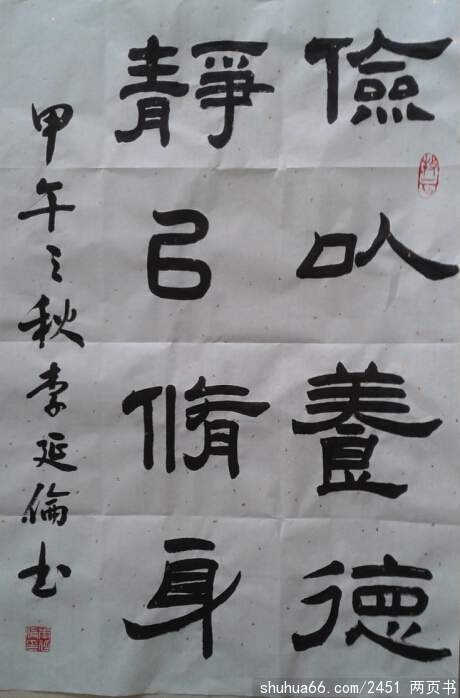 儉以養德
靜以脩身
甲午之秋李延倫书
shuhua66.com/2451 两页书